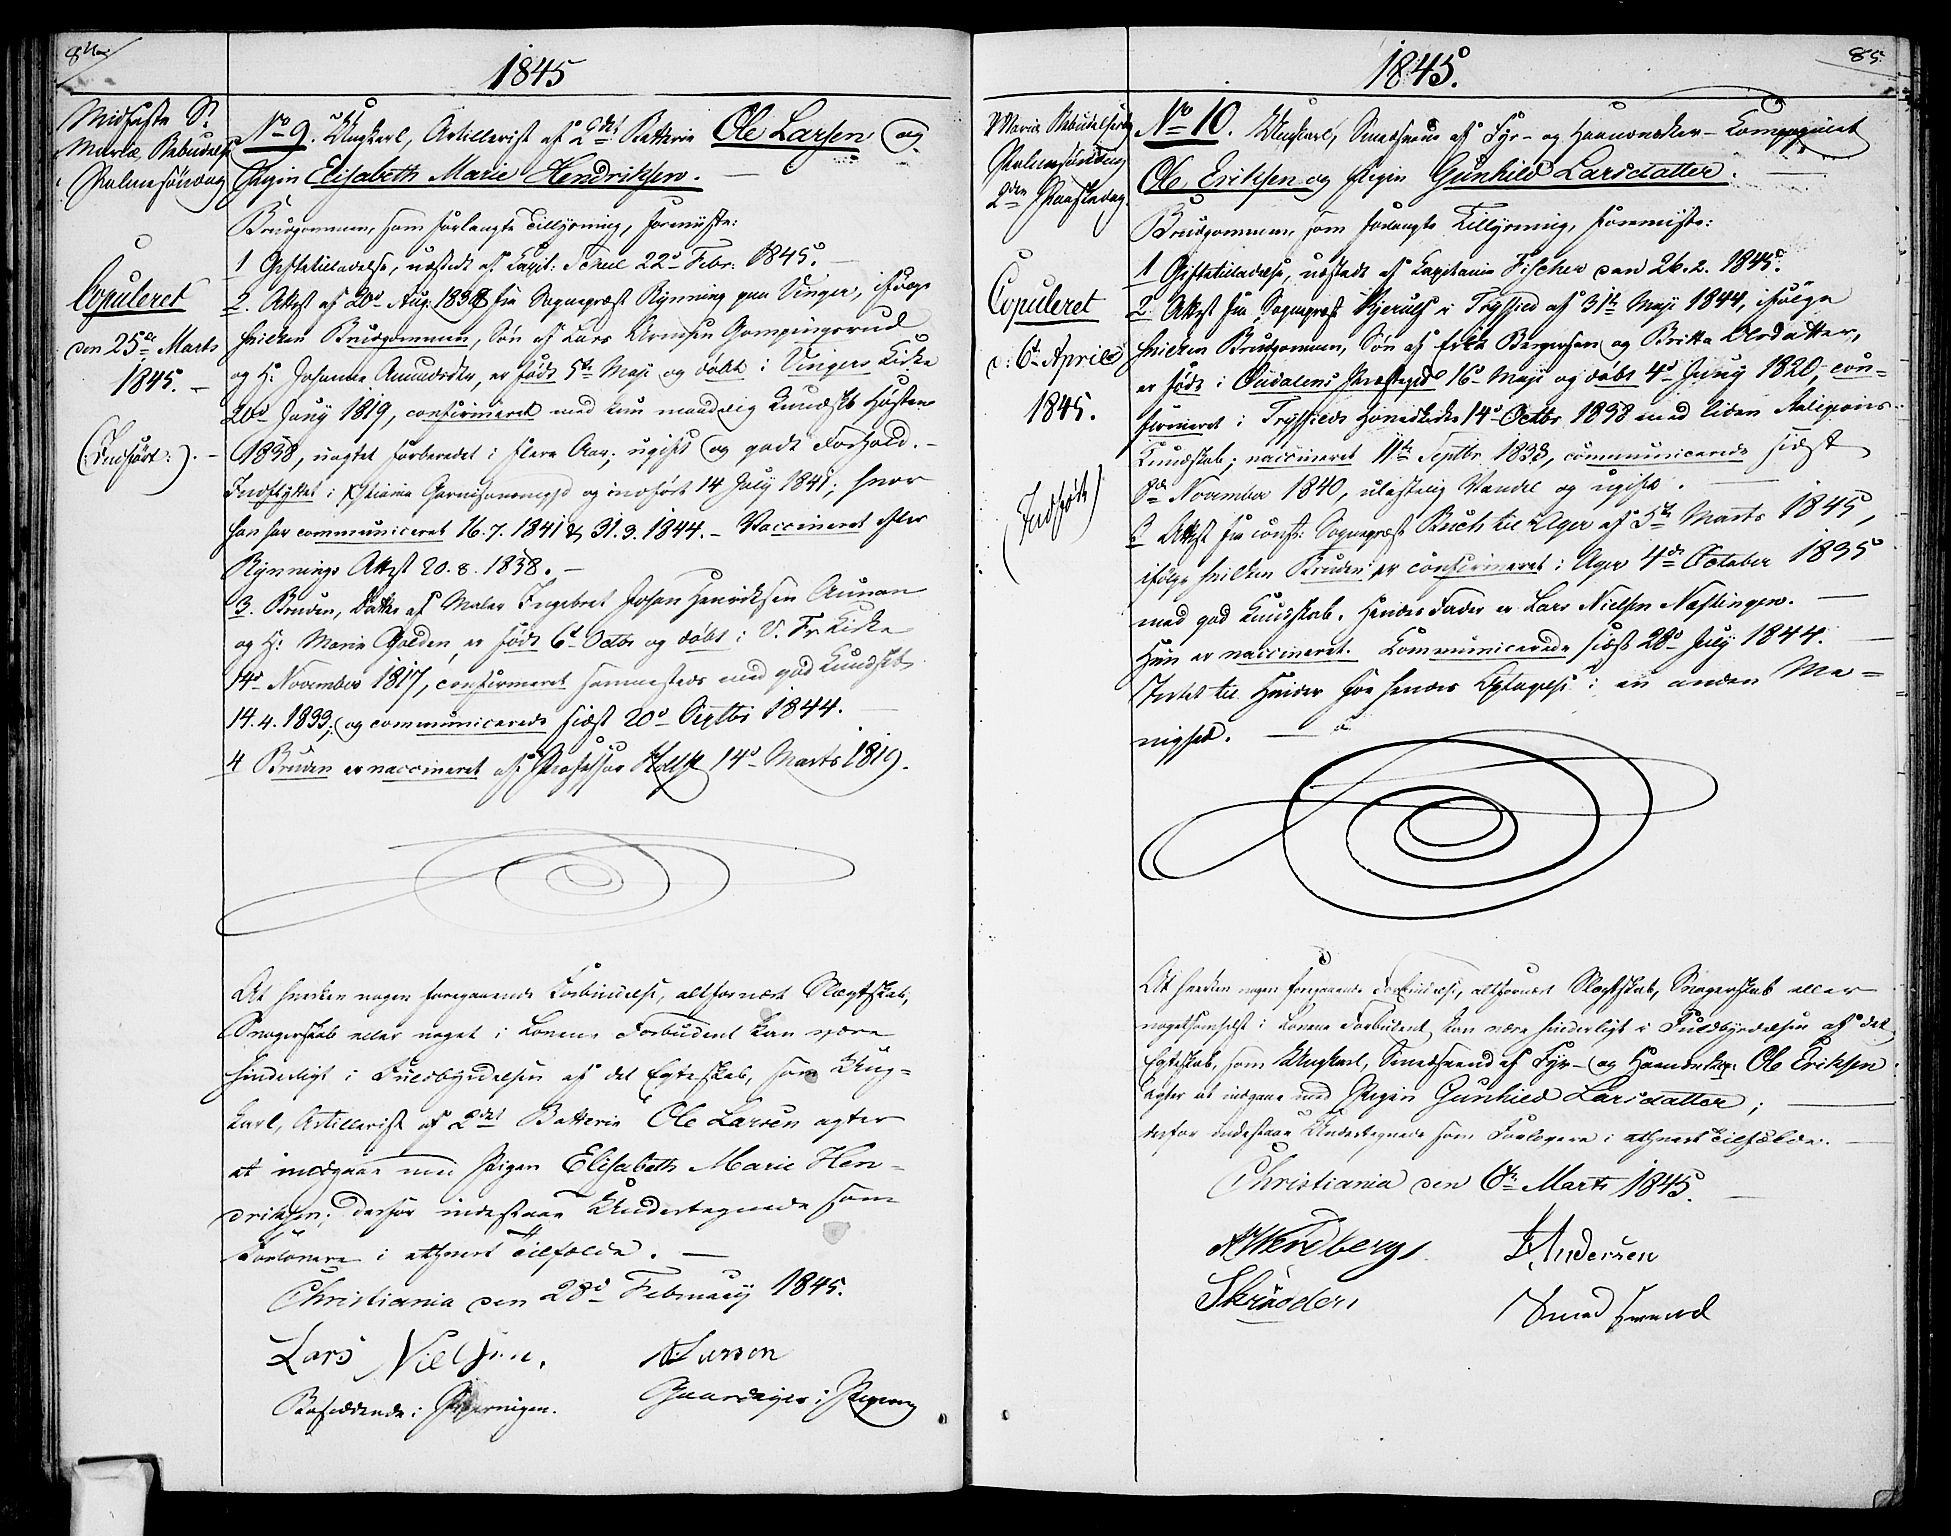 84
1845
Midfaste S.
Mariæ Bebudelse
Palmesöndag
Copuleret
den 25de Marts
1845. –
(: Indført :). –
No 9. Ungkarl, Artillerist af 2det Batterie Ole Larsen og
Pigen Elisabeth Marie Hendriksen. –
Brudgommen, som forlangte Tillysning, foreviiste:
1 Giftetilladelse, udstedt af Kapit: Scheel 22d Febr: 1845. –
2. Attest af 20d Aug. 1838 fra Sognepræst Rynning paa Vinger, ifølge
hvilken Brudgommen, Søn af Lars Gompingsrud
og H: Johanne Amundsdtr, er född 5te Maji og døbt i Vingers Kirke
20d Juny 1819, confirmeret med kun maadelig Kundskb Høsten
1838, uagtet forberedet i flere Aar; ugift og godt Forhold. –
Indflyttet i Xstiania Garnisonsmgd og indført 14 July 1841; hvor
han har communiceret 16.7.1841 & 31.3.1844. – Vaccineret efter
Rynnings Attest 20.8.1838. –
3. Bruden, Datter af Maler Ingebret Johan Henriksen Aunan
og H: Marie Golden, er född 6t Octbr og døbt i V. Fr. Kirke
14d November 1817, confirmeret sammesteds med god Kundskb
14.4.1833; og communicerede sidst 20d Septbr 1844. –
4 Bruden er vaccineret af Professor Holst 14d Marts 1819.
At hverken nogen foregaaende Forbindelse, altfornært Slægtskab,
Svogerskab eller noget i Lovene Forbudent kan være
hinderligt i Fuldbyrdelsen af det Egteskab, som Ung-
karl, Artillerist af 2det Batterie Ole Larsen agter
at indgaae med Pigen Elisabeth Marie Hen-
driksen; derfor indestaae Undertegnede som
Forlovere i ethvert Tilfælde. –
Christiania den 28d February 1845.
Lars Nielsen. A. Larsen
Boesiddende i Pipervigen. Gaardeier i Pipervig
85.
1845.
Mariæ Bebudelsesdag
Palmesöndag
2den Paaskedag.
Copuleret
d: 6te April
1845.
(Indført)
No 10. Ungkarl, Smedsvend af Fyr- og Haandværker-Compagniet
Ole Eriksen og Pigen Gunhild Larsdatter. –
Brudgommen, som forlangte Tillysning, foreviiste:
1 Giftetilladelse, udstedt af Kapitaine Fischer den 26.2.1845.
2. Attest fra Sognepræst Hjerulf i Trysild af 31te Maji 1844, ifølge
hvilken Brudgommen, Søn af Erik Bergersen og Britta Olsdatter,
er född i Oudalens Præstegd 16d Maji og døbt 4d Juny 1820, con-
firmeret i Trysilds Hovedkirke 14d Octbr 1838 med liden Religions-
Kundskab; vaccineret 11te Septbr 1838, communicerede sidst
8de November 1840, ulastelig Vandel og ugift. –
3 Attest fra const: Sognepræst Busch til Ager af 5te Marts 1845,
ifølge hvilken Bruden er confirmeret i Ager 4de October 1835
med god Kundskab. Hendes Fader er Lars Nielsen Næslingen. –
Hun er vaccineret. Communicerede sidst 28d July 1844. –
Intet til Hinder for hendes Optagelse i en anden Me-
nighed. –
At hverken nogen foregaaende Forbindelse, altfornært Slægtskab, Svogerskab eller
nogetsomhelst i Lovene Forbudent kan være hinderligt i Fuldbyrdelsen af det
Egteskab, som Ungkarl, Smedsvend af Fyr- og Haandvkp: Ole Eriksen
agter at indgaae med Pigen Gunhild Larsdatter; –
derfor indestaae Undertegnede som Forlovere i ethvert Tilfælde. –
Christiania den 6te Marts 1845. –
Wendberg Andersen
Skræder Smed svend